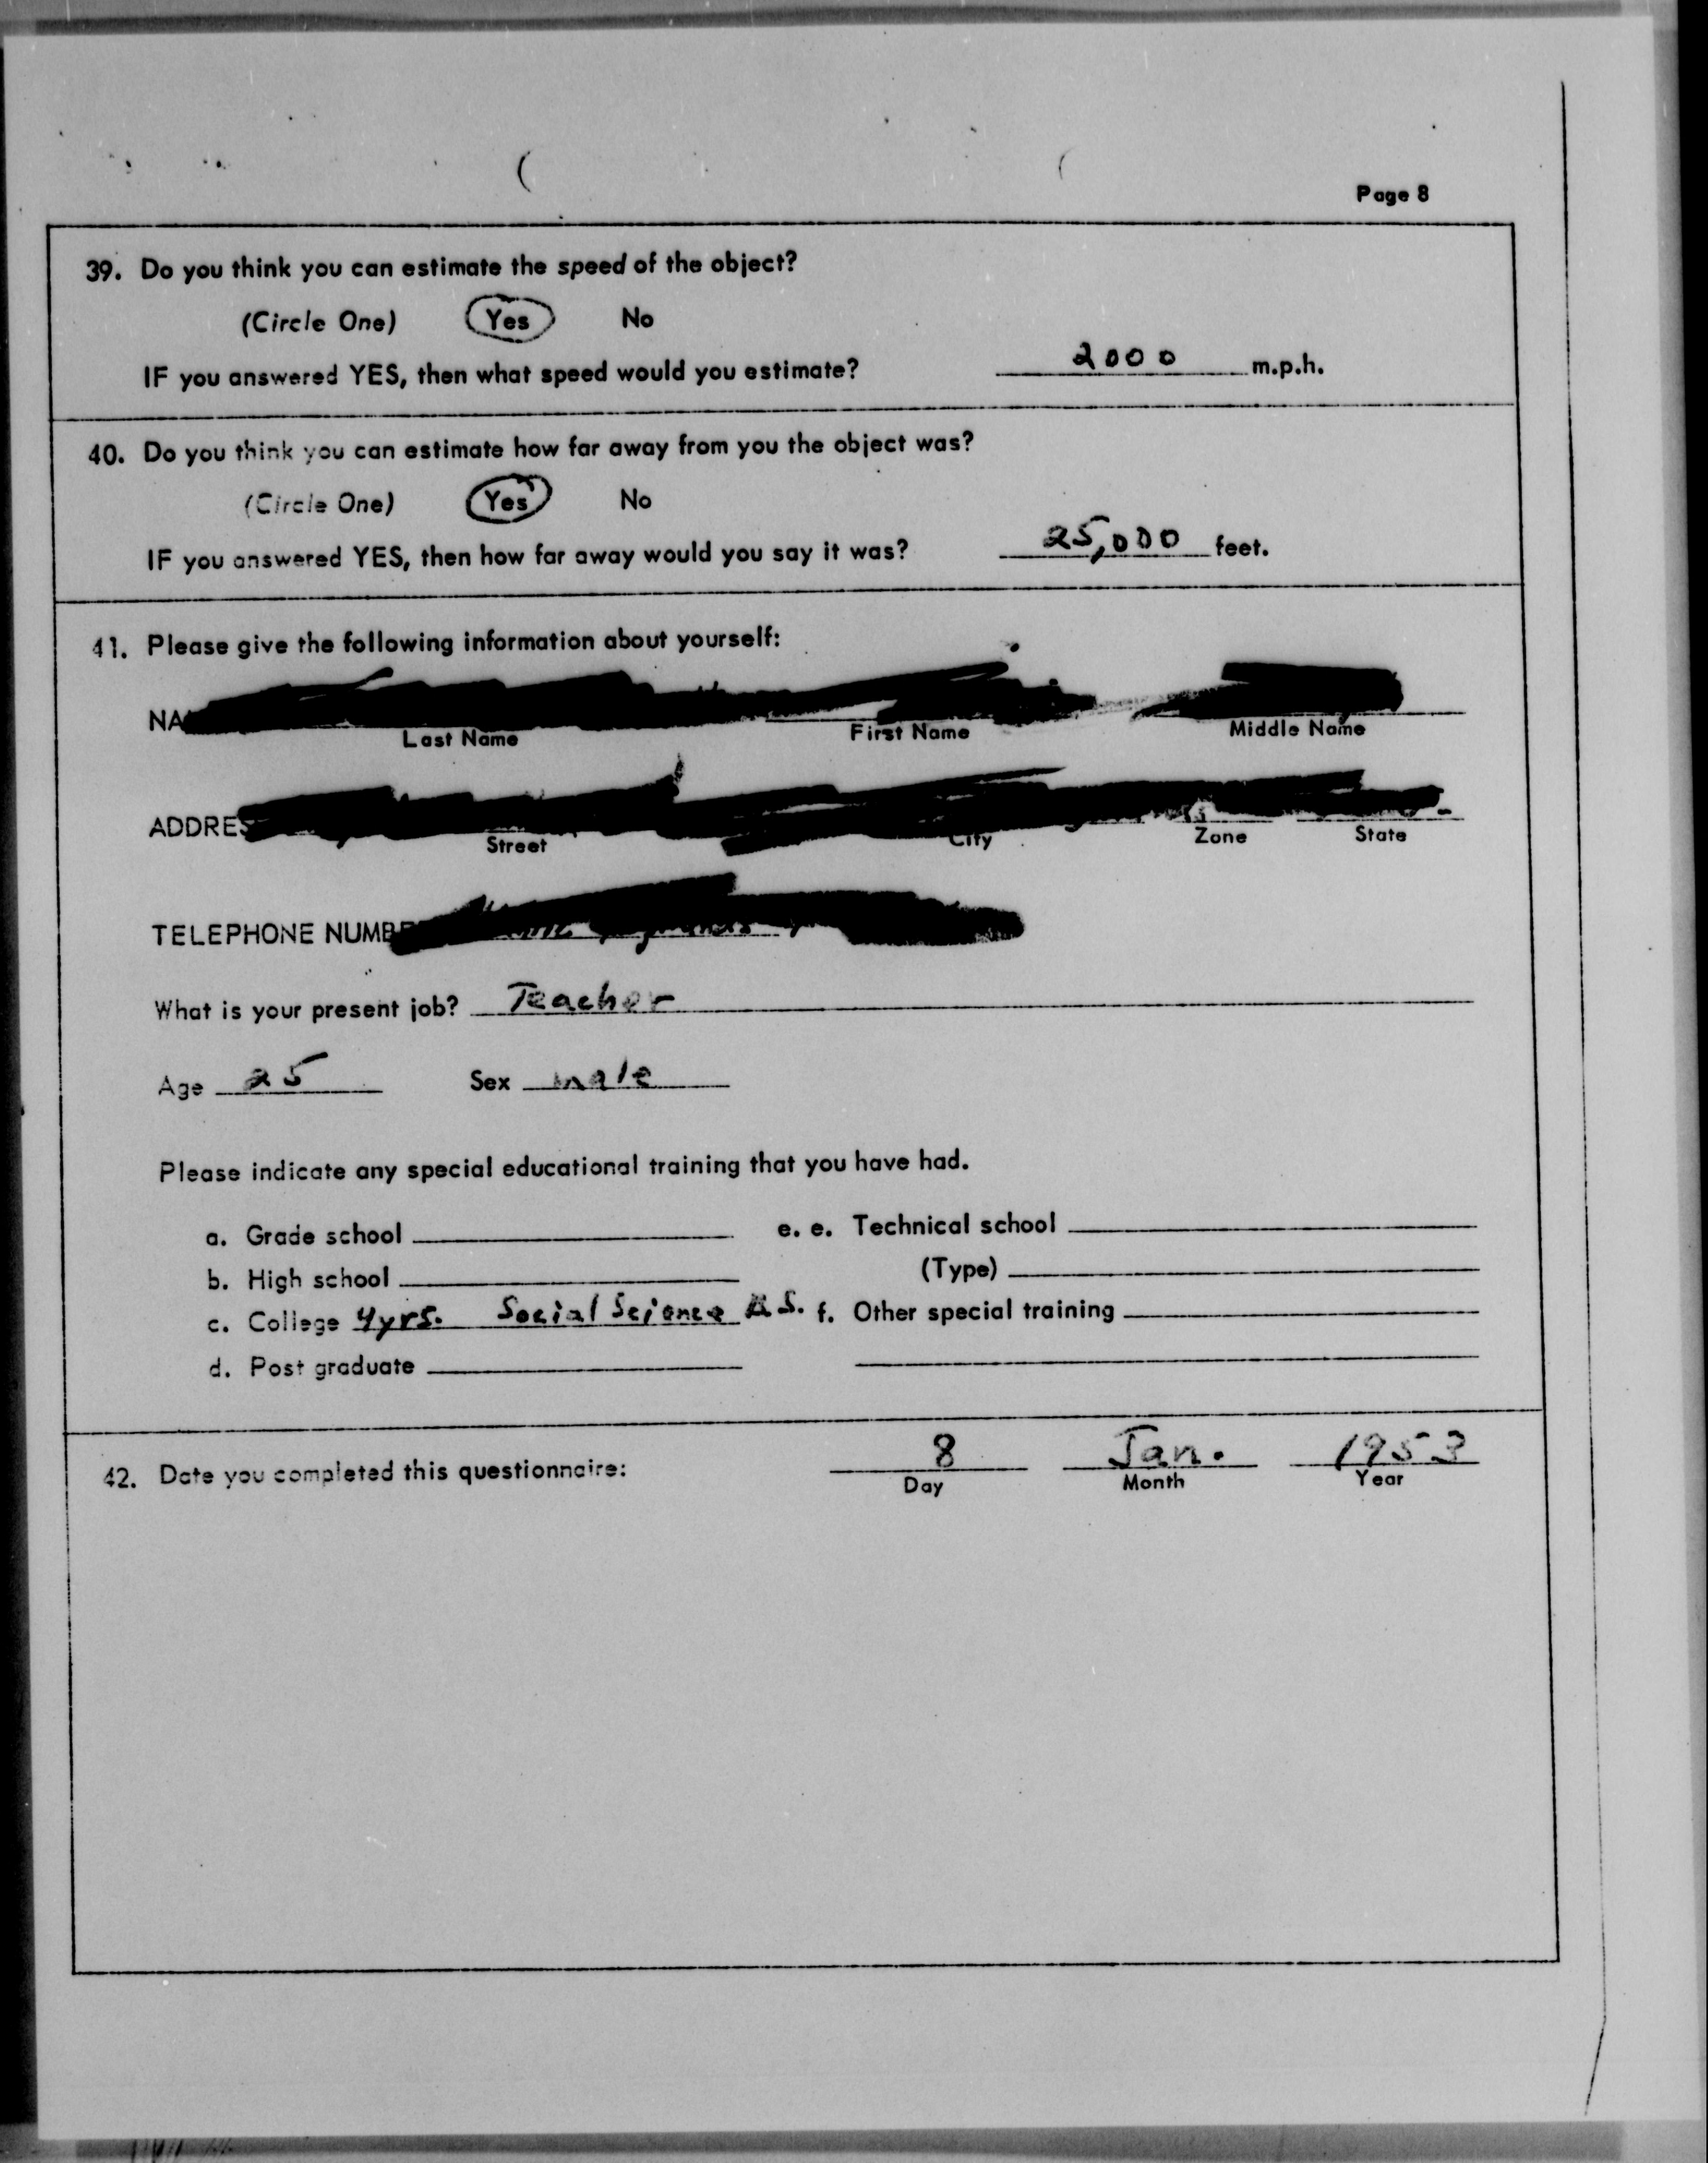 Page 8
39. Do you think you can estimate the speed of the object?
(Circle One) Yes No
IF you answered YES, then what speed would you estimate? 2000 m.p.h.
40. Do you think you can estimate how far away from you the object was?
(Circle One) Yes No
IF you answered YES, then how far away would you say it was? 25,000 feet.
41. Please give the following information about yourself:
NA
Last Name First Name Middle Name
ADDRES
Street City Zone State
TELEPHONE NUMBE
What is your present job? Teacher
Age 25 Sex male
Please indicate any special educational training that you have had.
a. Grade school e. e. Technical school
b. High school (Type)
c. College 4yrs. Social Science B.S. f. Other special training
d. Post graduate
42. Date you completed this questionnaire: 8 Jan. 1953
Day Month Year